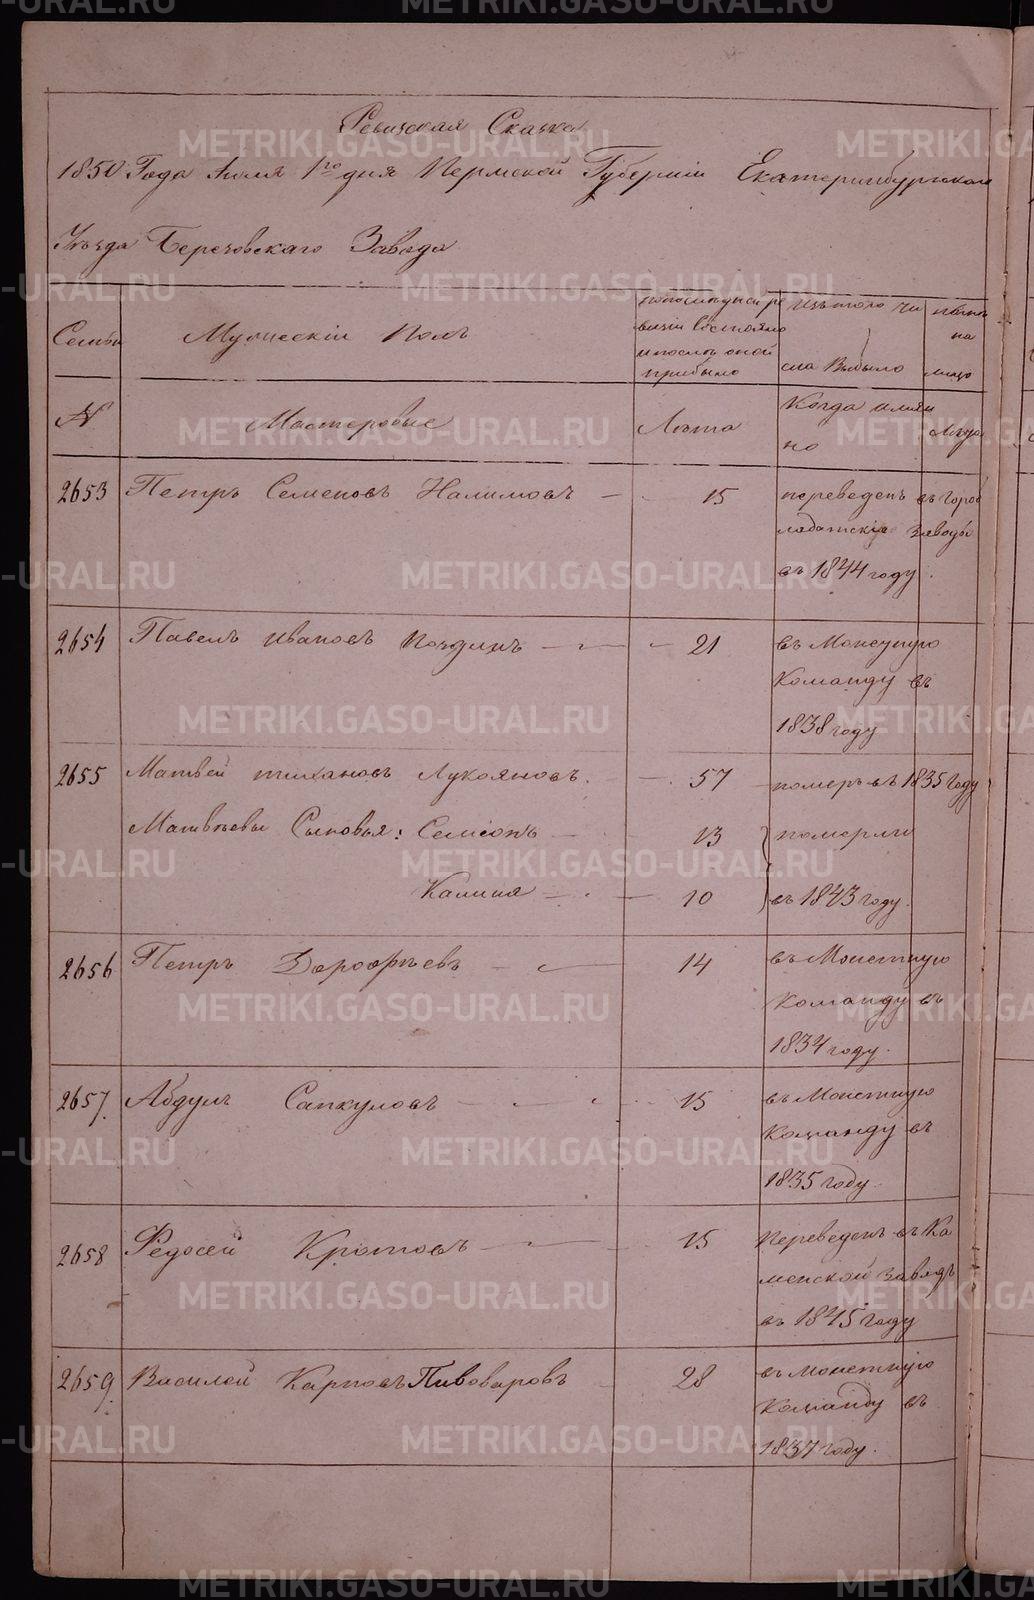 Ревизская Сказка
1850 Года Июля 1го дня Пермской Губерніи Екатеринбургскаго
Уѣзда Березовскаго Завода
Семьи
Мужескій Полъ
попослѣдней ре
визіи состояло
и послѣ оной
прибыло
изъ того чи
сла Выбыло
нынѣ
на
лицо
№
Мастеровые
Лѣта
Когда имян
но
Лѣта
2653 Петръ Семеновъ Налимовъ 15 переведенъ въ Горо
благодатскіе Заводы
въ 1844 году.
2654 Павелъ Ивановъ 21 въ Монетную
Команду въ
1838 году
2655 Матвей Тихановъ Лукояновъ. 57 померъ въ 1835 Году
Матвѣевы Сыновья: Семіонъ 13 померли
Калина 10 въ 1843 году.
2656 Петръ Дорофѣевъ 14 въ Монетную
Команду въ
1834 году.
2657 Абдулъ Сапкуловъ 15 въ Монетную
Команду въ
1835 году.
2658 Федосей Кротовъ 15 Переведенъ въ Ка
менской Заводъ
въ 1845 Году
2659 Василей Карповъ Пивоваровъ 28 въ Монетную
Команду въ
1837 году.
METRIKI.GASO-URAL.RU